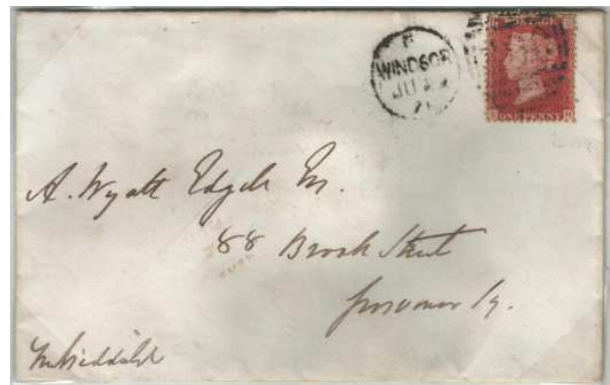 WINDSOR
POSTAGE
ONE PENNY
A. Wyatt Edgell
88 Brook Street
Grosvenor Sq.